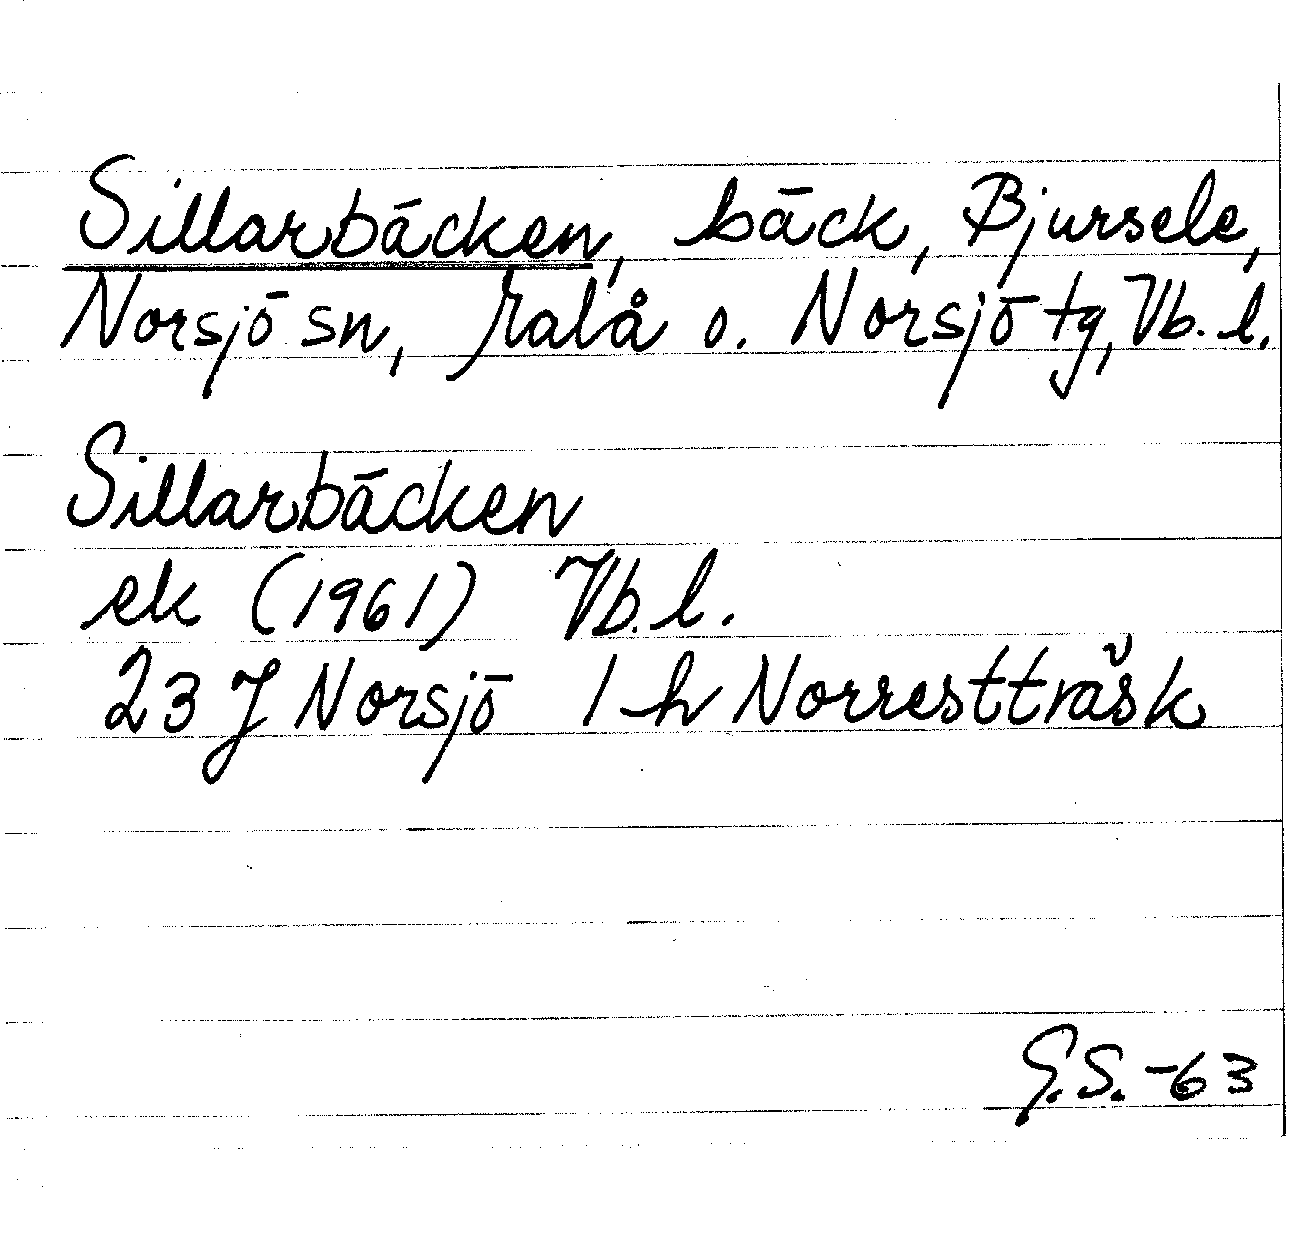 Sillarbäcken, bäck, Bjursele,
Norsjö sn, Malå o. Norsjö tg, Vb. l.
Sillarbäcken
ek (1961) Vb. l.
23 J Norsjö 1 h Norresttråsk
G.S. -63